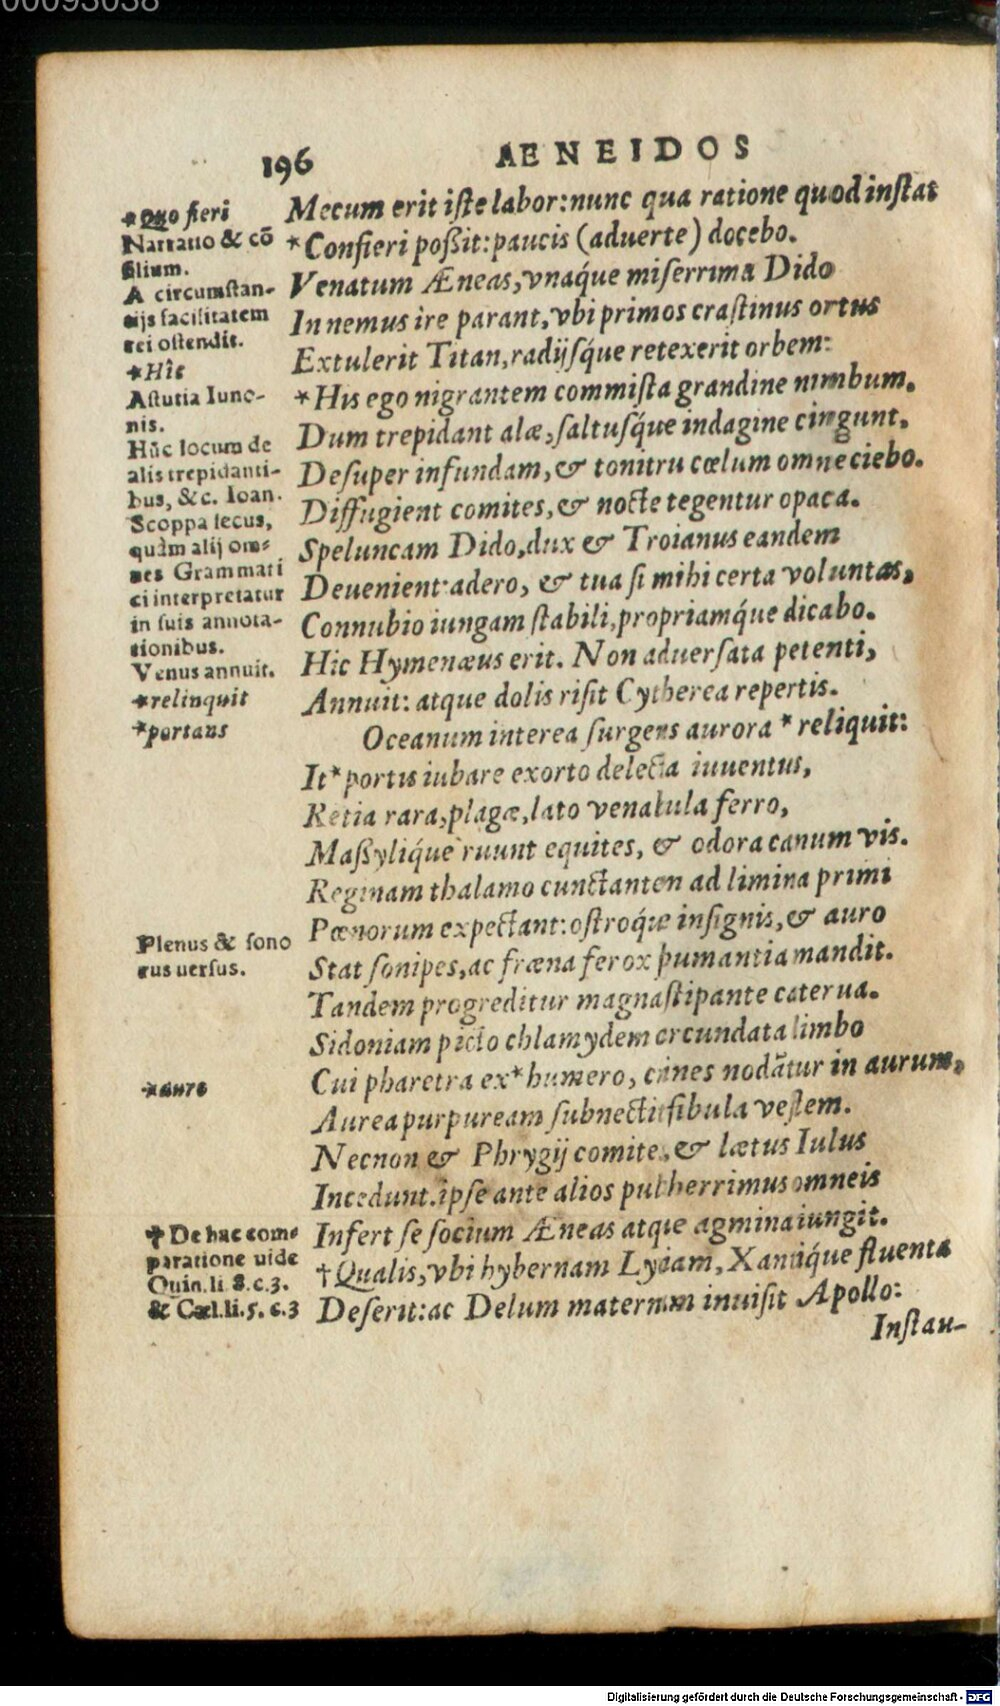 00093038
196
AENEIDOS
Mecum erit iſte labor: nunc qua ratione quod inſtat
*Confieri poßit: paucis (aduerte) docebo.
Venatum Æneas, vnaq́ue miſerrima Dido
In nemus ire parant, vbi primos craſtinus ortus
Extulerit Titan, radijſq́ue retexerit orbem:
*His ego nigrantem commiſta grandine nimbum.
Dum trepidant alæ, ſaltuſq́ue indagine cingunt,
Deſuper infundam, & tonitru cœlum omne ciebo.
Diffugient comites, & nocte tegentur opaca.
Speluncam Dido, dux & Troianus eandem
Deuenient: adero, & tua ſi mihi certa voluntas,
Connubio iungam ſtabili, propriamq́ue dicabo.
Hic Hymenæus erit. Non aduerſata petenti,
Annuit: atque dolis riſit Cytherea repertis.
Oceanum interea ſurgens aurora * reliquit:
It * portis iubare exorto delecta iuuentus,
Retia rara, plagæ, lato venabula ferro,
Maßyliq́ue ruunt equites, & odora canum vis.
Reginam thalamo cunctantem ad limina primi
Pœnorum expectant: oſtroq́ue inſignis, & auro
Stat ſonipes, ac fræna ferox ſpumantia mandit.
Tandem progreditur magna ſtipante caterua.
Sidoniam picto chlamydem circundata limbo
Cui pharetra ex * humero, crines nodātur in aurum,
Aurea purpuream ſubnectit fibula veſtem.
Necnon & Phrygij comites, & lætus Iulus
Incedunt. ipſe ante alios pulcherrimus omneis
Infert ſe ſocium Æneas atque agmina iungit.
†Qualis, vbi hybernam Lyciam, Xantiq́ue fluenta
Deſerit: ac Delum maternam inuiſit Apollo:
Inſtau-
*Quo fieri
Narratio & cō
ſilium.
A circumſtan-
tijs facilitatem
rei oſtendit.
*Hîc
Aſtutia Iuno-
nis.
Hūc locum de
alis trepidanti-
bus, &c. Ioan.
Scoppa ſecus,
quàm alij om-
nes Grammati
ci interpretatur
in ſuis annota-
tionibus.
Venus annuit.
*relinquit
*portans
Plenus & ſono
rus uerſus.
*auro
† De hac com-
paratione uide
Quin. li. 8. c. 3.
& Cæl. li. 5. c. 3
Digitalisierung gefördert durch die Deutsche Forschungsgemeinschaft - DFG